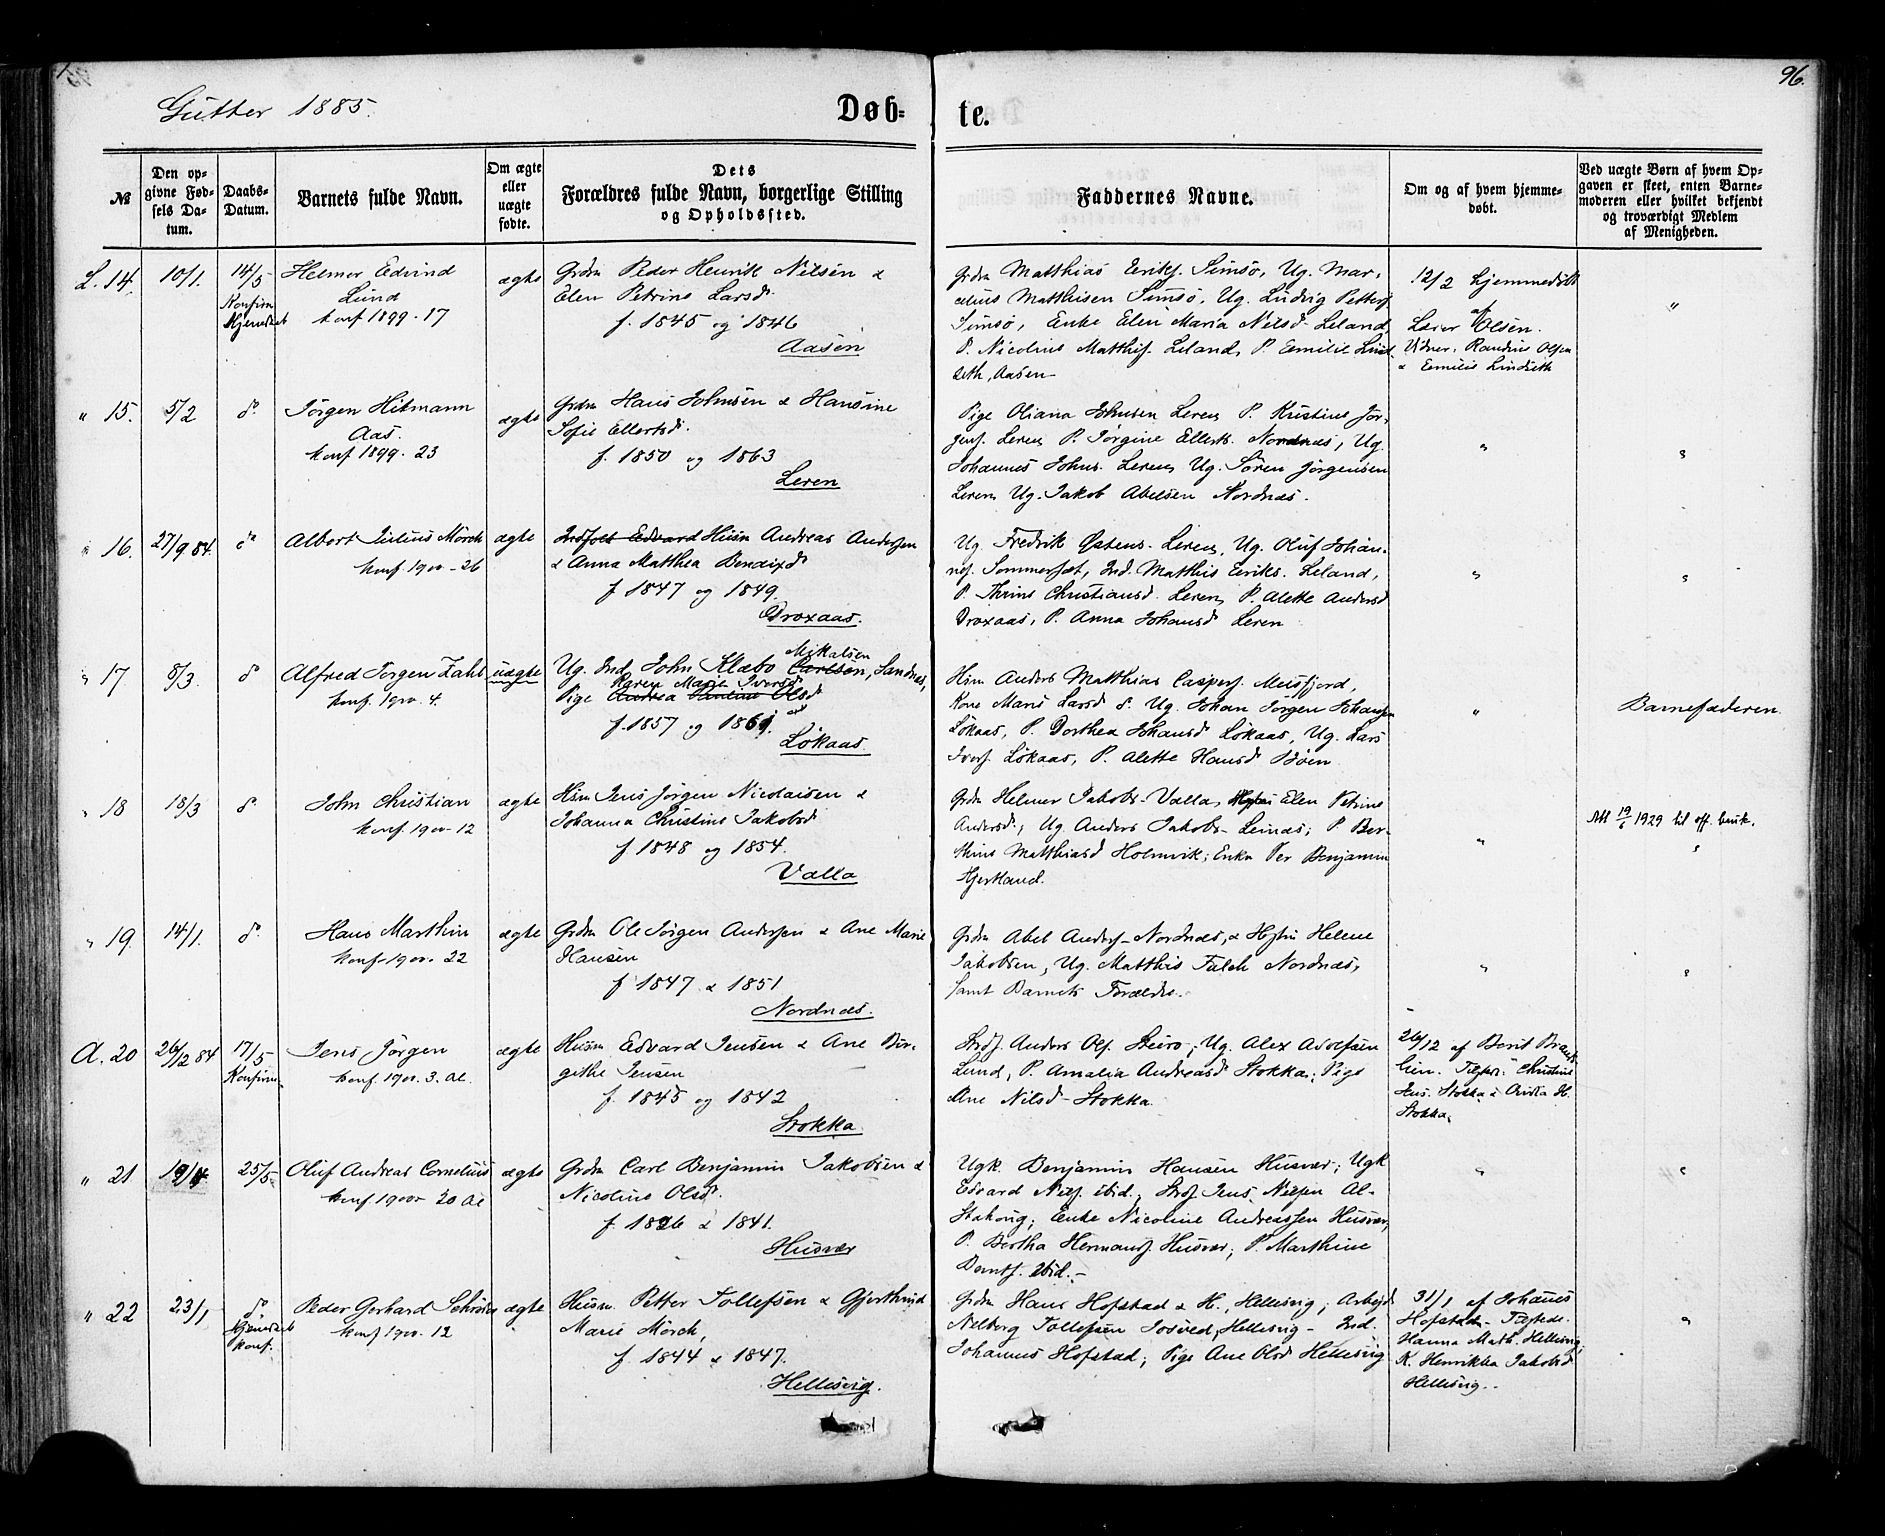 96.
Gutter 1885.
Døb=
te.
№
Den op-
givne Fød-
sels Da-
tum.
Daabs-
Datum.
Barnets fulde Navn.
Om ægte
eller
uægte
fødte.
Dets
Forældres fulde Navn, borgerlige Stilling
og Opholdssted.
Faddernes Navne.
Om og af hvem hjemme-
døbt.
Ved uægte Børn af hvem Op-
gaven er skeet, enten Barne-
moderen eller hvilket bekjendt
og troværdigt Medlem
af Menigheden.
L. 14.
10/1.
14/5
Konfirm
Hjemdøbt
Helmer Edvind
Lund
konf 1899. 17
ægte
Grdm Peder Henrik Nilsen &
Elen Petrine Larsd.
f. 1845 og 1846
Aasen
Grdm Matthias Eriks. Simsø, Ug. Mar-
celius Matthisen Simsø, Ug. Ludvig Petters
Simsø, Enke Elen Maria Nilsd. Leland,
P. Nicoline Matthis. Leland, P. Emilie Lind-
seth, Aasen
12/2 hjemmedøbt
af
Lærer Olsen.
Vidner. Randine Olsen
& Emilie Lindseth
"
" 15.
5/2
do
Jørgen Hitmann
Aas.
konf 1899. 23
ægte
Grdm Hans Johnsen & Hansine
Sofie Ellertsd.
f. 1850 og 1863
Leren
Pige Oliana Johnsen Leren, P. Kristine Jør-
gens. Leren, P. Jørgine Ellerts. Nordnæs, Ug.
Johannes Johns. Leren, Ug. Søren Jørgensen
Leren, Ug. Jakob Abelsen Nordnæs.
"
"
" 16.
27/9 84.
do
Albert Julius Mörch
konf. 1900 - 26
ægte
Indfolt Edvard Husm Andreas Andersen
& Anna Matthea Bendixd.
f 1847 og 1849.
Droxaas.
Ug. Fredrik Østens. Leren, Ug. Oluf Johan-
nes. Sommerset, Ind. Matthis Eriks. Leland,
P. Thrine Christiansd. Leren, P. Alette Andersd
Droxaas, P. Anna Johansd Leren
"
"
" 17
8/3.
do
Alfred Jørgen Zahl
konf. 1900. 4.
uægte
Mikalsen
Ug. Ind. John Klæbo Carlsen, Sandnæs,
Karen Marie Iversd
Pige Andrea Pauline Olsd
f. 1857 og 1861.
Løkaas.
Hsm Anders Matthias Caspers. Meisfjord,
Kone Maris Larsd do. Ug. Johan Jørgen Johansen
Løkaas, P. Dorthea Johansd Løkaas, Ug. Lars
Ivers. Løkaas, P. Alette Hansd Bøen
"
Barnefaderen.
" 18
18/3
do
John Christian
konf. 1900 - 12
ægte
Hsm Jens Jørgen Nicolaisen &
Johanna Christine Jakobsd
f 1848 og 1854.
Valla
Grdm Helmer Jakobs. Valla, Elen Petrine
Andersd., Ug. Anders Jakobs. Leinæs; P. Ber-
thine Matthiasd Holmvik; Enkm Per Benjamin
Hjertland.
"
Att 19/6 1929 til off. bruk.
"
" 19.
14/1.
do
Hans Marthin
konf - 1900. 22
ægte
Grdm Ole Jørgen Andersen & Ane Marie
Hansen
f 1847 & 1851
Nordnæs.
Grdm Abel Anders. Nordnæs, & Hstr Helene
Jakobsen, Ug. Matthis Falch Nordnæs,
samt Barnets Forældre.
"
"
A. 20
26/12 84
17/5
Konfirm.
Jens Jørgen
konf. 1900. 3. Al.
ægte
Husm Edvard Jensen & Ane Bir-
githe Jensen
f. 1845 og 1842
Stokka.
Strdf. Anders Ols. Leiro; Ug. Alex Adolfsen
Lund, P. Amalia Andreasd Stokka; Pige
Ane Nilsd - Stokka.
26/12 af Berit
Lien.
Jens. Stokka &
Stokka.
" 21
19/4
25/5.
Oluf Andreas Cornelius
konf 1900 20 Al
ægte
Grdm Carl Benjamin Jakobsen &
Nicoline Olsd.
f. 1826 & 1841.
Husvær
Ugk. Benjamin Hansen Husvær; Ugk
Edvard Niels. ibid.; Strdf. Jens Nilsen Al-
Stahoug; Enke Nicoline Andreassen Husvær,
P. Bertha Hermans. Husvær; P. Marthine
Bernts. ibid. -
"
"
" 22
23/1
do
Hjemdøbt
konf.
Peder Gerhard Schrøder
konf 1900. 12
ægte
Husm. Petter Tollefsen & Gjerthrud
Marie Mörch,
f. 1844 & 1847.
Hellesvig.
Grdm Hans Hofstad & H., Hellesvig; Arbejd.
Nelberg Tollefsen Hellesvig - Ind.
Johannes Hofstad; Pige Ane Olsd Hellesvig
31/1 af Johannes
Hofstad.
Hanna Math. Hellesvig,
K. Henrikka Jakobsd
Hellesvig.
"